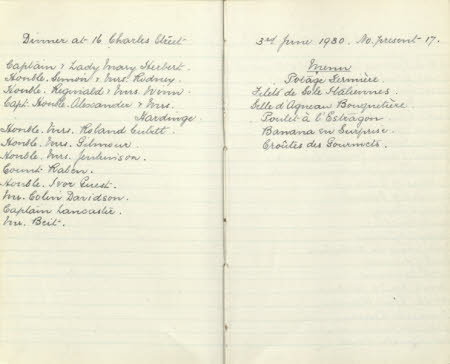 Dinner at 16 Charles Street
Captain & Lady Mary Herbert.
Honble. Simon & Mrs. Rodney.
Honble. Reginald & Mrs. Winn.
Capt. Honble. Alexander & Mrs.
Hardinge.
Honble. Mrs. Roland Cubitt.
Honble. Mrs. Gilmour.
Honble. Mrs. Jenkinson.
Count Raben.
Honble. Ivor Guest.
Mr. Colin Davidson.
Captain Lancaster.
Mr. Beit.
3rd June 1930. No. present - 17.
Menu
Potage Fermière.
Filets de Sole Italiennes.
Selle d'Agneau Bouquetière.
Poulet à l'Estragon
Banana en Surprise.
Croûtes des Gourmets.